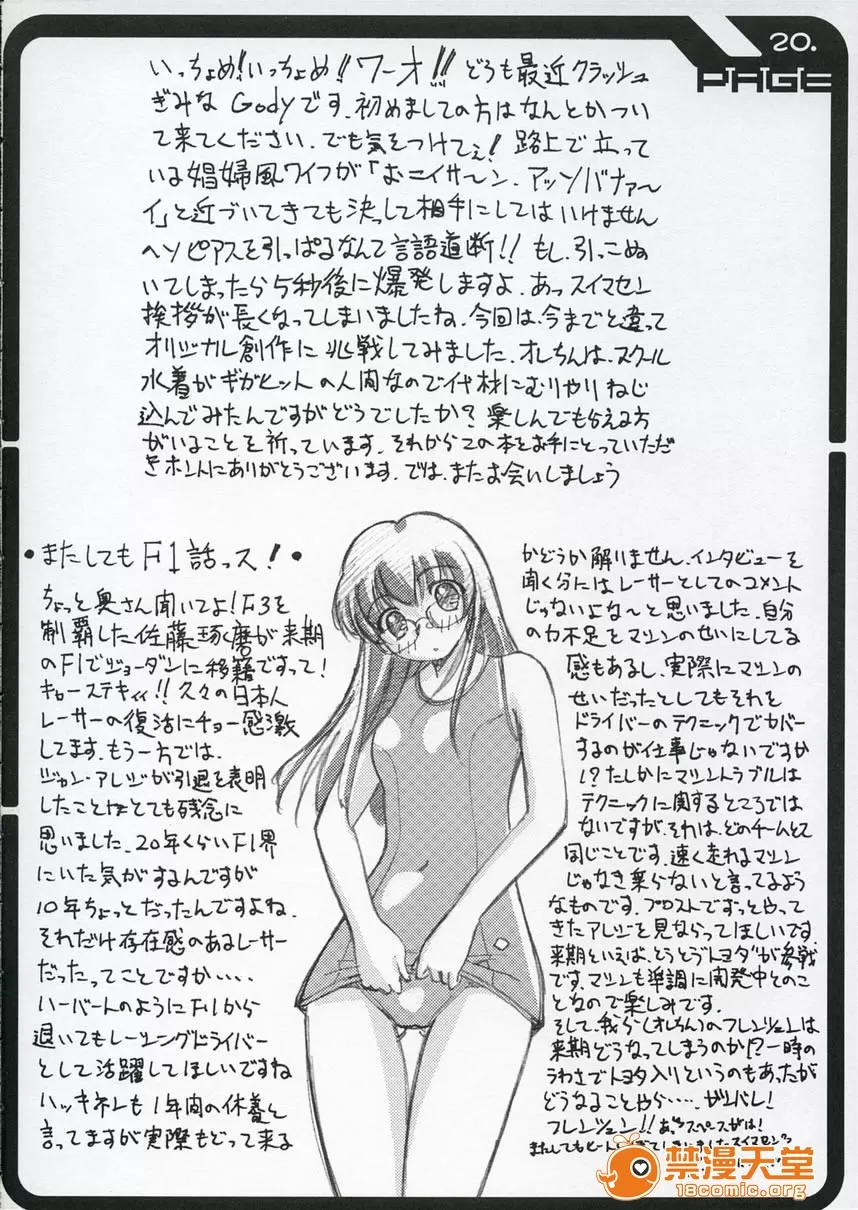 20.
PAGE
いっちょめ!いっちょめ!!ワーオ!!!どうも最近クラッシュ
ぎみなGodyです.初めましての方はなんとかつい
て来てください.でも気をつけてぇ!路上で立って
いる娼婦風ワイフが「おニイサ〜ン.アッソバナァ〜
イ」と近づいてきても決して相手にしてはいけません
ヘソピアスを引っぱるなんて言語道断!!もし.引っこぬ
いてしまったら5秒後に爆発しますよ.あっスイマセン
挨拶が長くなってしまいましたね.今回は.今までと違って
オリジナル創作に挑戦してみました.オレちんは.スクール
水着がギガヒットの人間なので代材にむりやりねじ
込んでみたんですがどうでしたか?楽しんでもらえる方
がいることを祈っています.それからこの本をお手にとっていただ
きホントにありがとうございます.では.またお会いしましょう
・またしてもF1話っス!・
ちょっと奥さん聞いてよ!F3を
制覇した佐藤琢磨が来期
のF1でジョーダンに移籍ですって!
キャーステキィィ!!久々の日本人
レーサーの復活にチョー感激
してます.もう一方では.
ジャン・アレジが引退を表明
したことがとても残念に
思いました.20年くらいF1界
にいた気がするんですが
10年ちょっとだったんですよね.
それだけ存在感のあるレーサー
だったってことですか....
ハーバートのようにF1から
退いてもレーシングドライバー
として活躍してほしいですね
ハッキネンも1年間の休養と
言ってますが実際もどって来る
かどうか解りません.インタビューを
聞く分にはレーサーとしてのコメント
じゃないよな〜と思いました.自分
の力不足をマシンのせいにしてる
感もあるし.実際にマシンの
せいだったとしてもそれを
ドライバーのテクニックでカバー
するのが仕事じゃないですか
!?たしかにマシントラブルは
テクニックに関するところでは
ないですが.それは.どのチームとて
同じことです.速く走れるマシン
じゃなき乗らないと言ってるよう
なものです.プロストでずっとやって
きたアレジを見ならってほしいです.
来期といえば.とうとうトヨタが参戦
です.マシンも準調に開発中とのこ
となので楽しみです.
そして.我らが(オレちん)のフレンツェンは
来期どうなってしまうのか!?一時の
うわさでトヨタ入りというのもあったが
どうなることやら.....ガンバレ!
フレンツェン!!あっスペースがは!
またしてもヒート
スイマセン
禁漫天堂
18comic.org